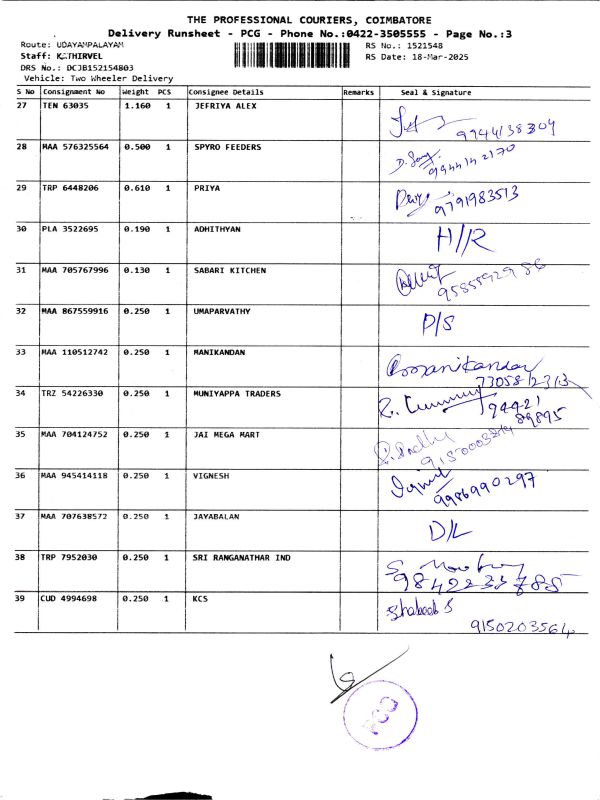 THE PROFESSIONAL COURIERS, COIMBATORE
Delivery Runsheet - PCG - Phone No.:0422-3505555 - Page No.:3
Route: UDAYAMPALAYAM RS No.: 1521548
Staff: KATHIRVEL RS Date: 18-Mar-2025
DRS No.: DCJB152154803
Vehicle: Two Wheeler Delivery
S No Consignment No Weight PCS Consignee Details Remarks Seal & Signature
27 TEN 63035 1.160 1 JEFRIYA ALEX
9944138304
28 MAA 576325564 0.500 1 SPYRO FEEDERS
9444142170
29 TRP 6448206 0.610 1 PRIYA
9791983513
30 PLA 3522695 0.190 1 ADHITHYAN H/R
31 MAA 705767996 0.130 1 SABARI KITCHEN
9585592986
32 MAA 867559916 0.250 1 UMAPARVATHY P/S
33 MAA 110512742 0.250 1 MANIKANDAN Manikandan
73058 12313
34 TRZ 54226330 0.250 1 MUNIYAPPA TRADERS
94421
89895
35 MAA 704124752 0.250 1 JAI MEGA MART
36 MAA 945414118 0.250 1 VIGNESH
9986990297
37 MAA 707638572 0.250 1 JAYABALAN D/L
38 TRP 7952030 0.250 1 SRI RANGANATHAR IND
9842233785
39 CUD 4994698 0.250 1 KCS Shabeeb S
9150203564
PCG